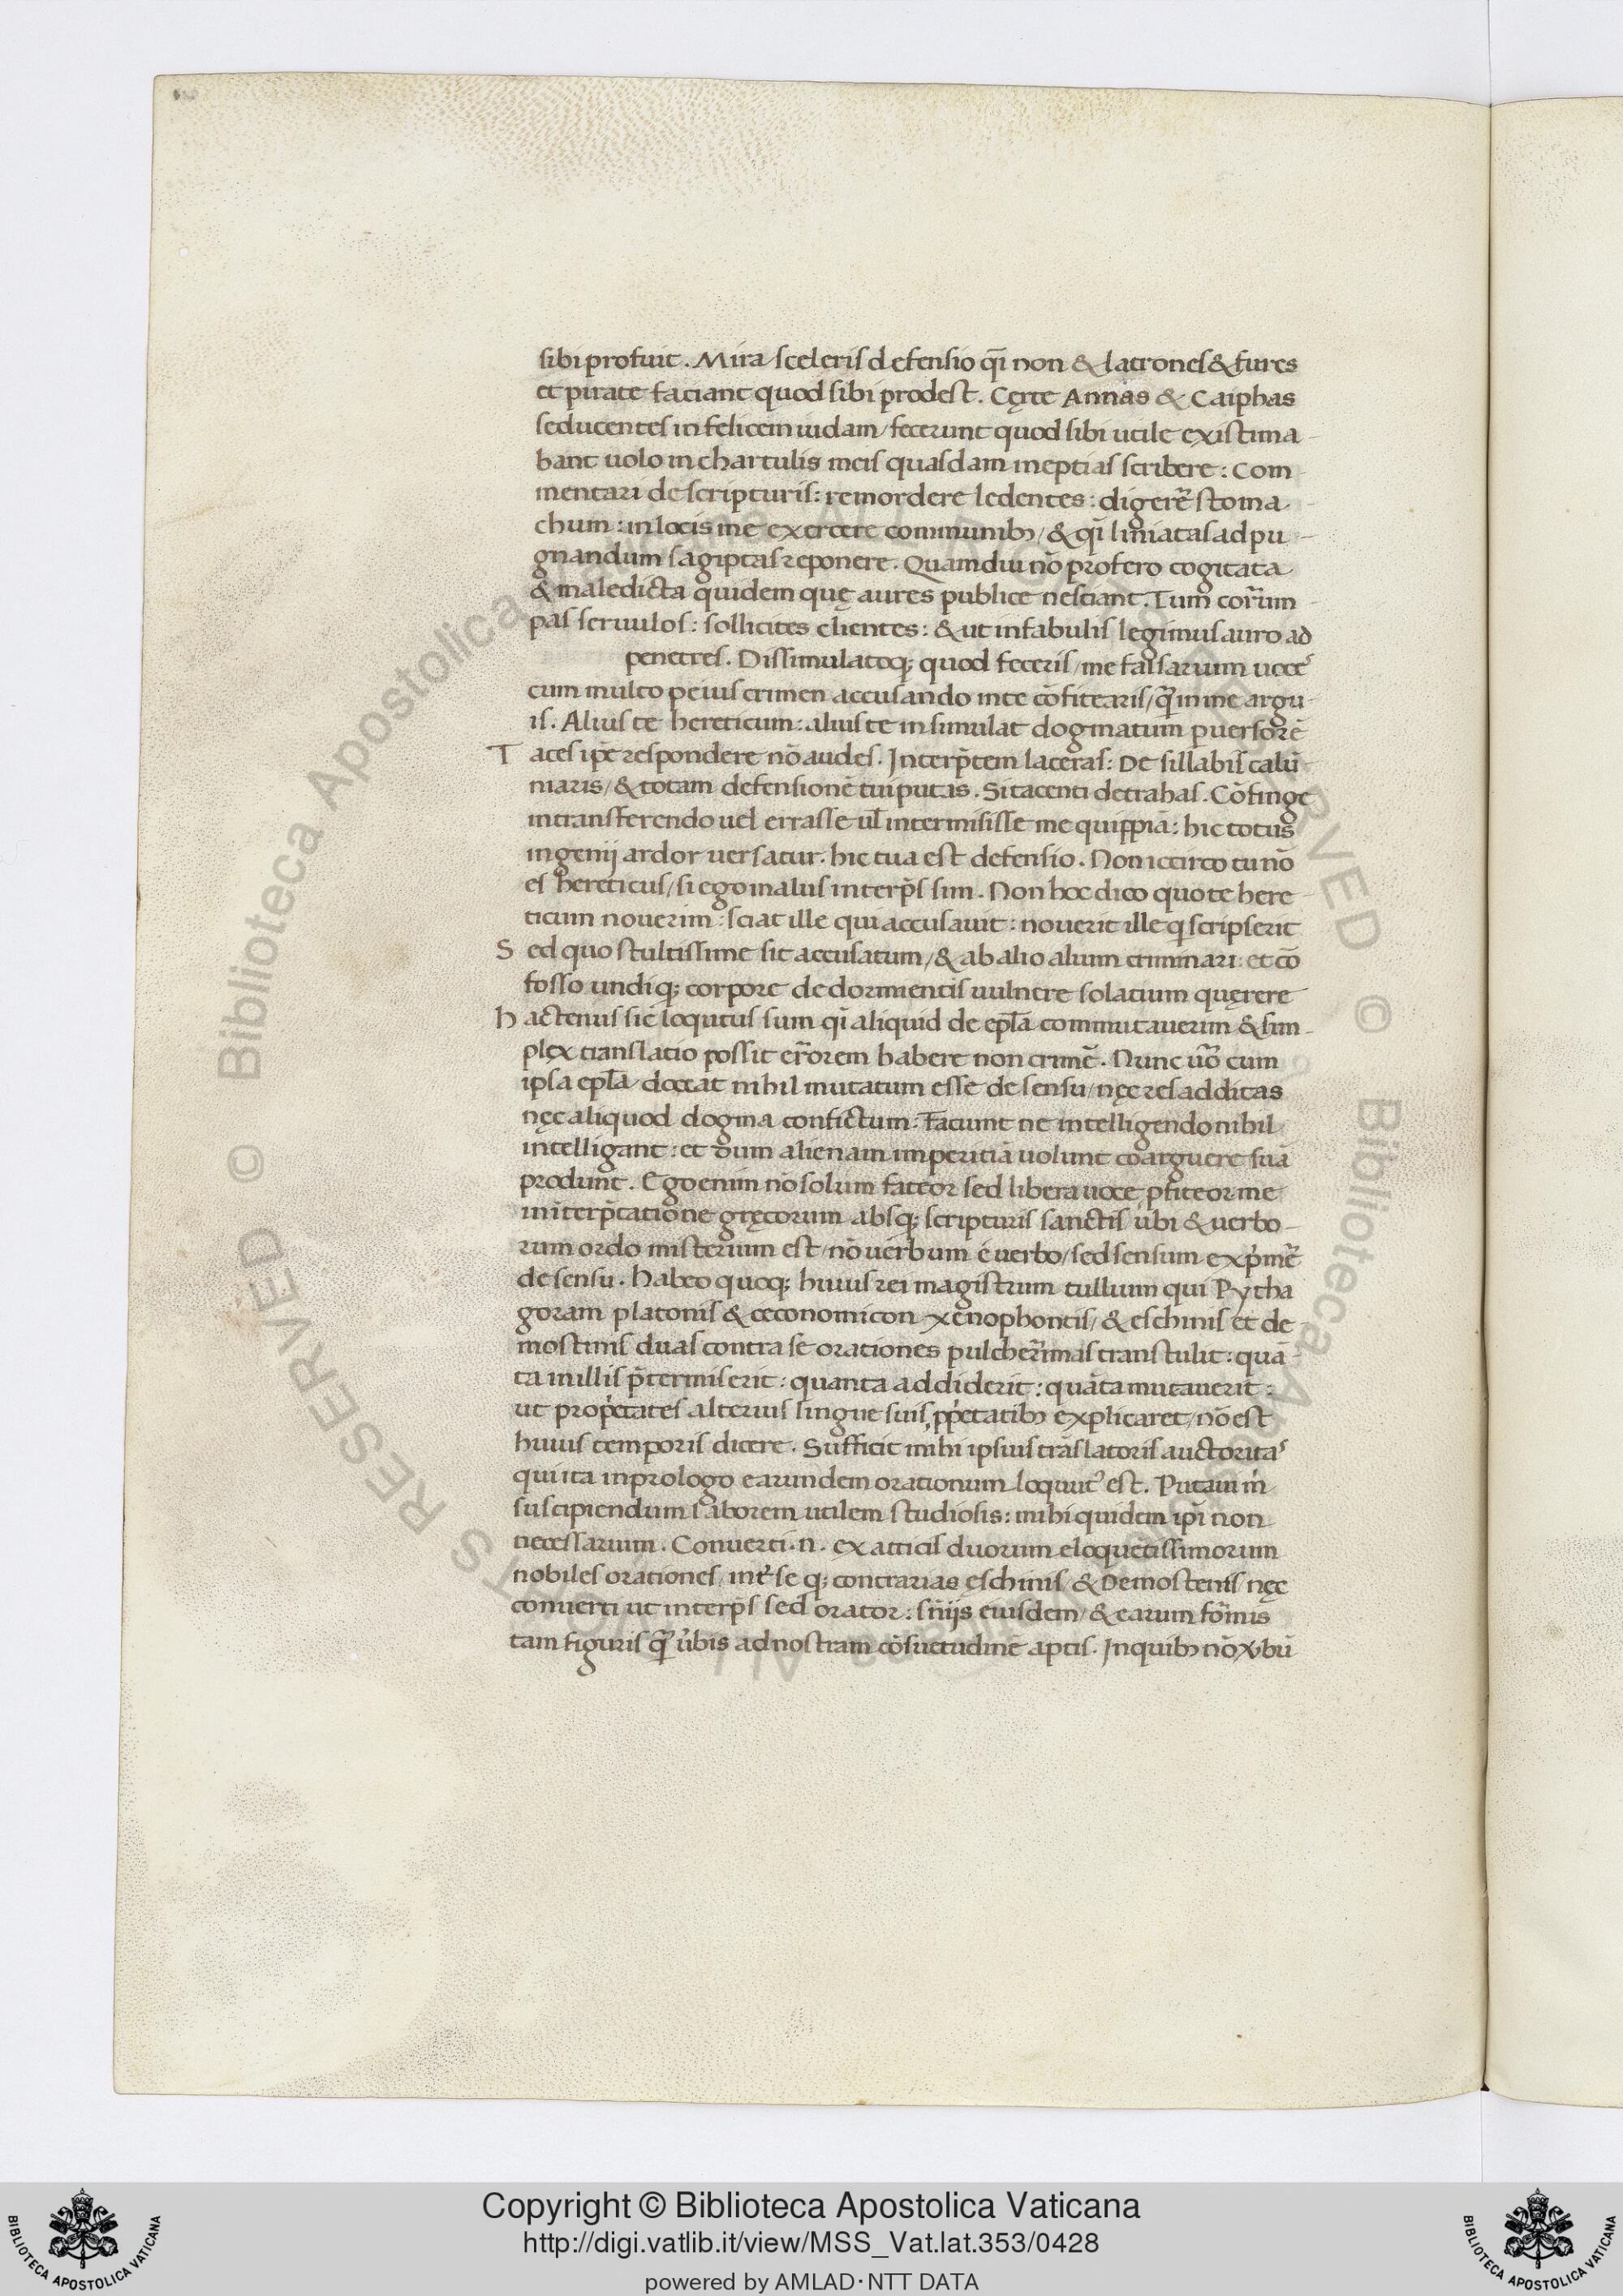 sibi profuit. Mira sceleris defensio qĩ non & latrones & fures
et pirate faciant quod sibi prodest. Cęrte Annas & Caiphas
seducentes infelicem iudam/ fecerunt quod sibi utile existima-
bant uolo in chartulis meis quasdam ineptias scribere: Com-
mentari de scripturis: remordere ledentes: digerẽ stoma-
chum: in locis me exercere communib;/ & qĩ limatas ad pu-
gnandum sagiptas reponere. Quamdiu nõ profero cogitata
& maledicta quidem quę aures publice nesciant. Tum cor̃um
pas seruulos: sollicites clientes: & ut in fabulis legimus auro ad
penetres. Dissimulatoq; quod feceris/ me falsarium uoce᷒
cum multo peius crimen accusando in te cõfitearis/ q̃ in me argu-
is. Alius te hereticum: alius te insimulat dogmatum puersorẽ
Taces ip̃e respondere nõ audes. Interp̃tem laceras: De sillabis calũ
niaris/ & totam defensionẽ tui putas. Si tacenti detrahas. Cõfinge
in transferendo uel errasse ul̃ intermisisse me quippiã: hic totus
ingenij ardor uersatur. hic tua est defensio. Non iccirco tu nõ
es hereticus/ si ego malus interp̃s sim. Non hoc dico quo te here-
ticum nouerim: sciat ille qui accusauit: nouerit ille q scripserit
Sed quo stultissime sit accusatum/ & ab alio alium criminari: et cõ
fosso undiq; corpore de dormientis uulnere solatium quęrere
Hactenus sic loqutus sum qĩ aliquid de epl̃a commutauerim & sim-
plęx translatio possit er̃orem habere non crimẽ. Nunc uõ cum
ipsa epl̃a doceat nihil mutatum esse de sensu/ nęc res additas
nęc aliquod dogma confictum: Faciunt ne intelligendo nihil
intelligant: et dum alienam imperitiã uolunt coarguere suã
produnt. Ego enim nõ solum fateor sed libera uoce pfiteor me
in interp̃tatione gręcorum absq; scripturis sanctis ubi & uerbo-
rum ordo misterium est/ nõ uerbum e uerbo/ sed sensum exp̃merẽ
de sensu. Habeo quoq; huius rei magistrum tullium qui Pytha
goram platonis & œconomicon xenophontis/ & eschinis et de
mostinis duas contra se orationes pulcher̃imas transtulit: quã-
ta in illis p̃termiserit: quanta addiderit: quãta mutauerit:
ut prop̃etates alterius lingue suis pp̃etatib; explicaret/ nõ est
huius temporis dicere. Sufficit mihi ipsius trãslatoris auctoritas
qui ita in prologo earundem orationum loqut᷒ est. Putaui m̃
suscipiendum laborem utilem studiosis: mihi quidem ip̃i non
necessarium. Conuerti .n. ex atticis duorum eloquẽtissimorum
nobiles orationes/ int̃ se q; contrarias ęschinis/ & Demostenis nęc
conuerti ut interp̃s sed orator: sñijs eiusdem/ & earum fõmis
tam figuris q̃ ũbis ad nostram cõsuetudinẽ aptis. In quib; nõ ũbũ